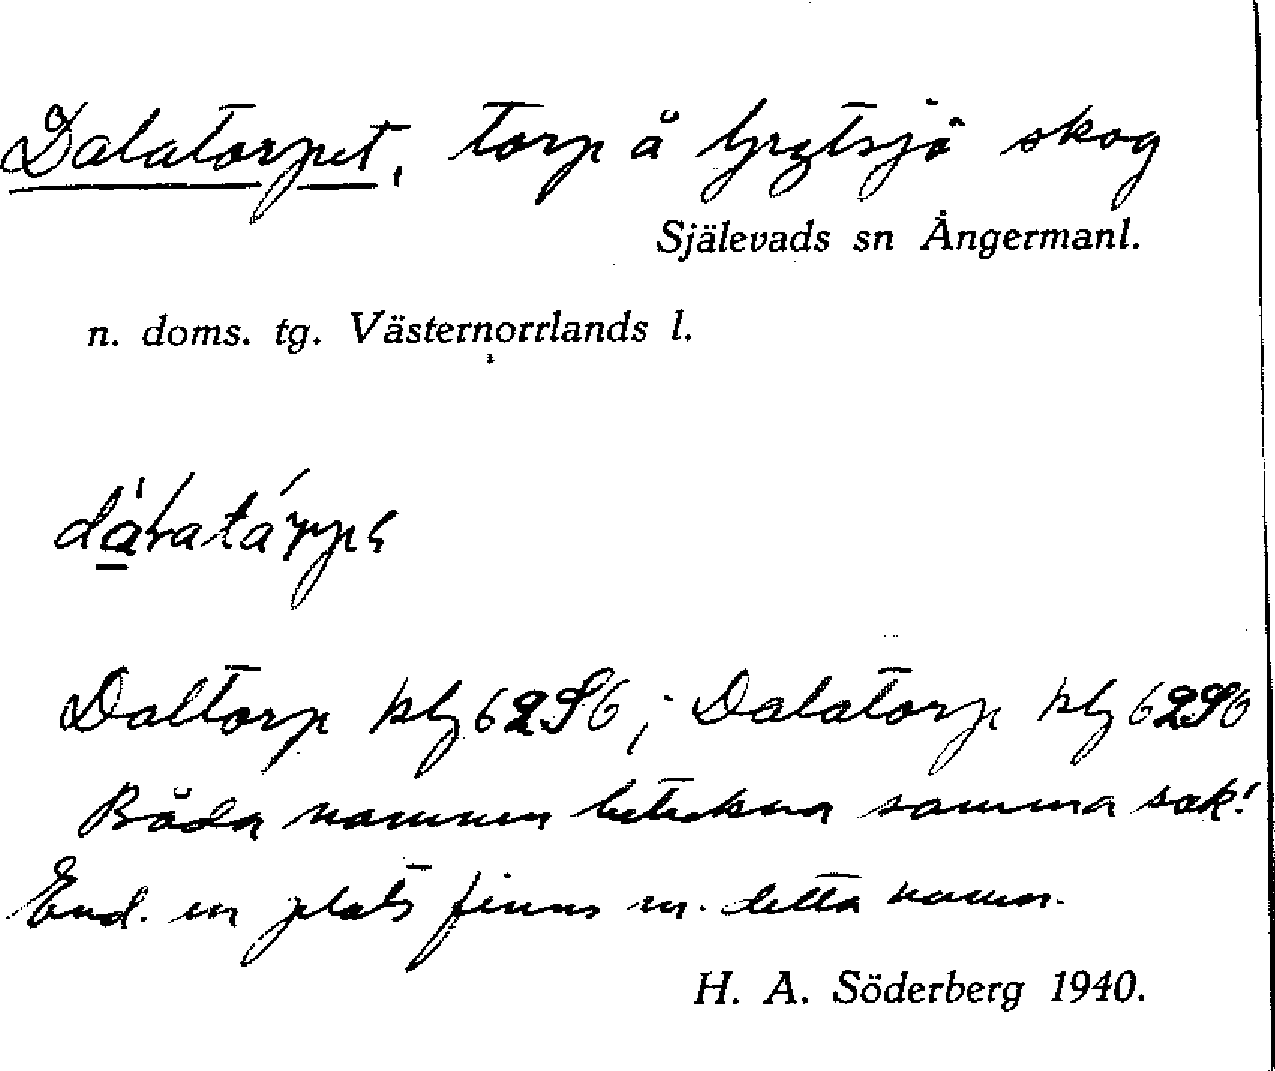 Dalatorpet, torp å skog
Själevads sn Ångermanl.
n. doms. tg. Västernorrlands l.
Daltorp ; Dalatorp
Båda namnen beteckna samma sak!
End. en plats finns m. detta namn.
H. A. Söderberg 1940.